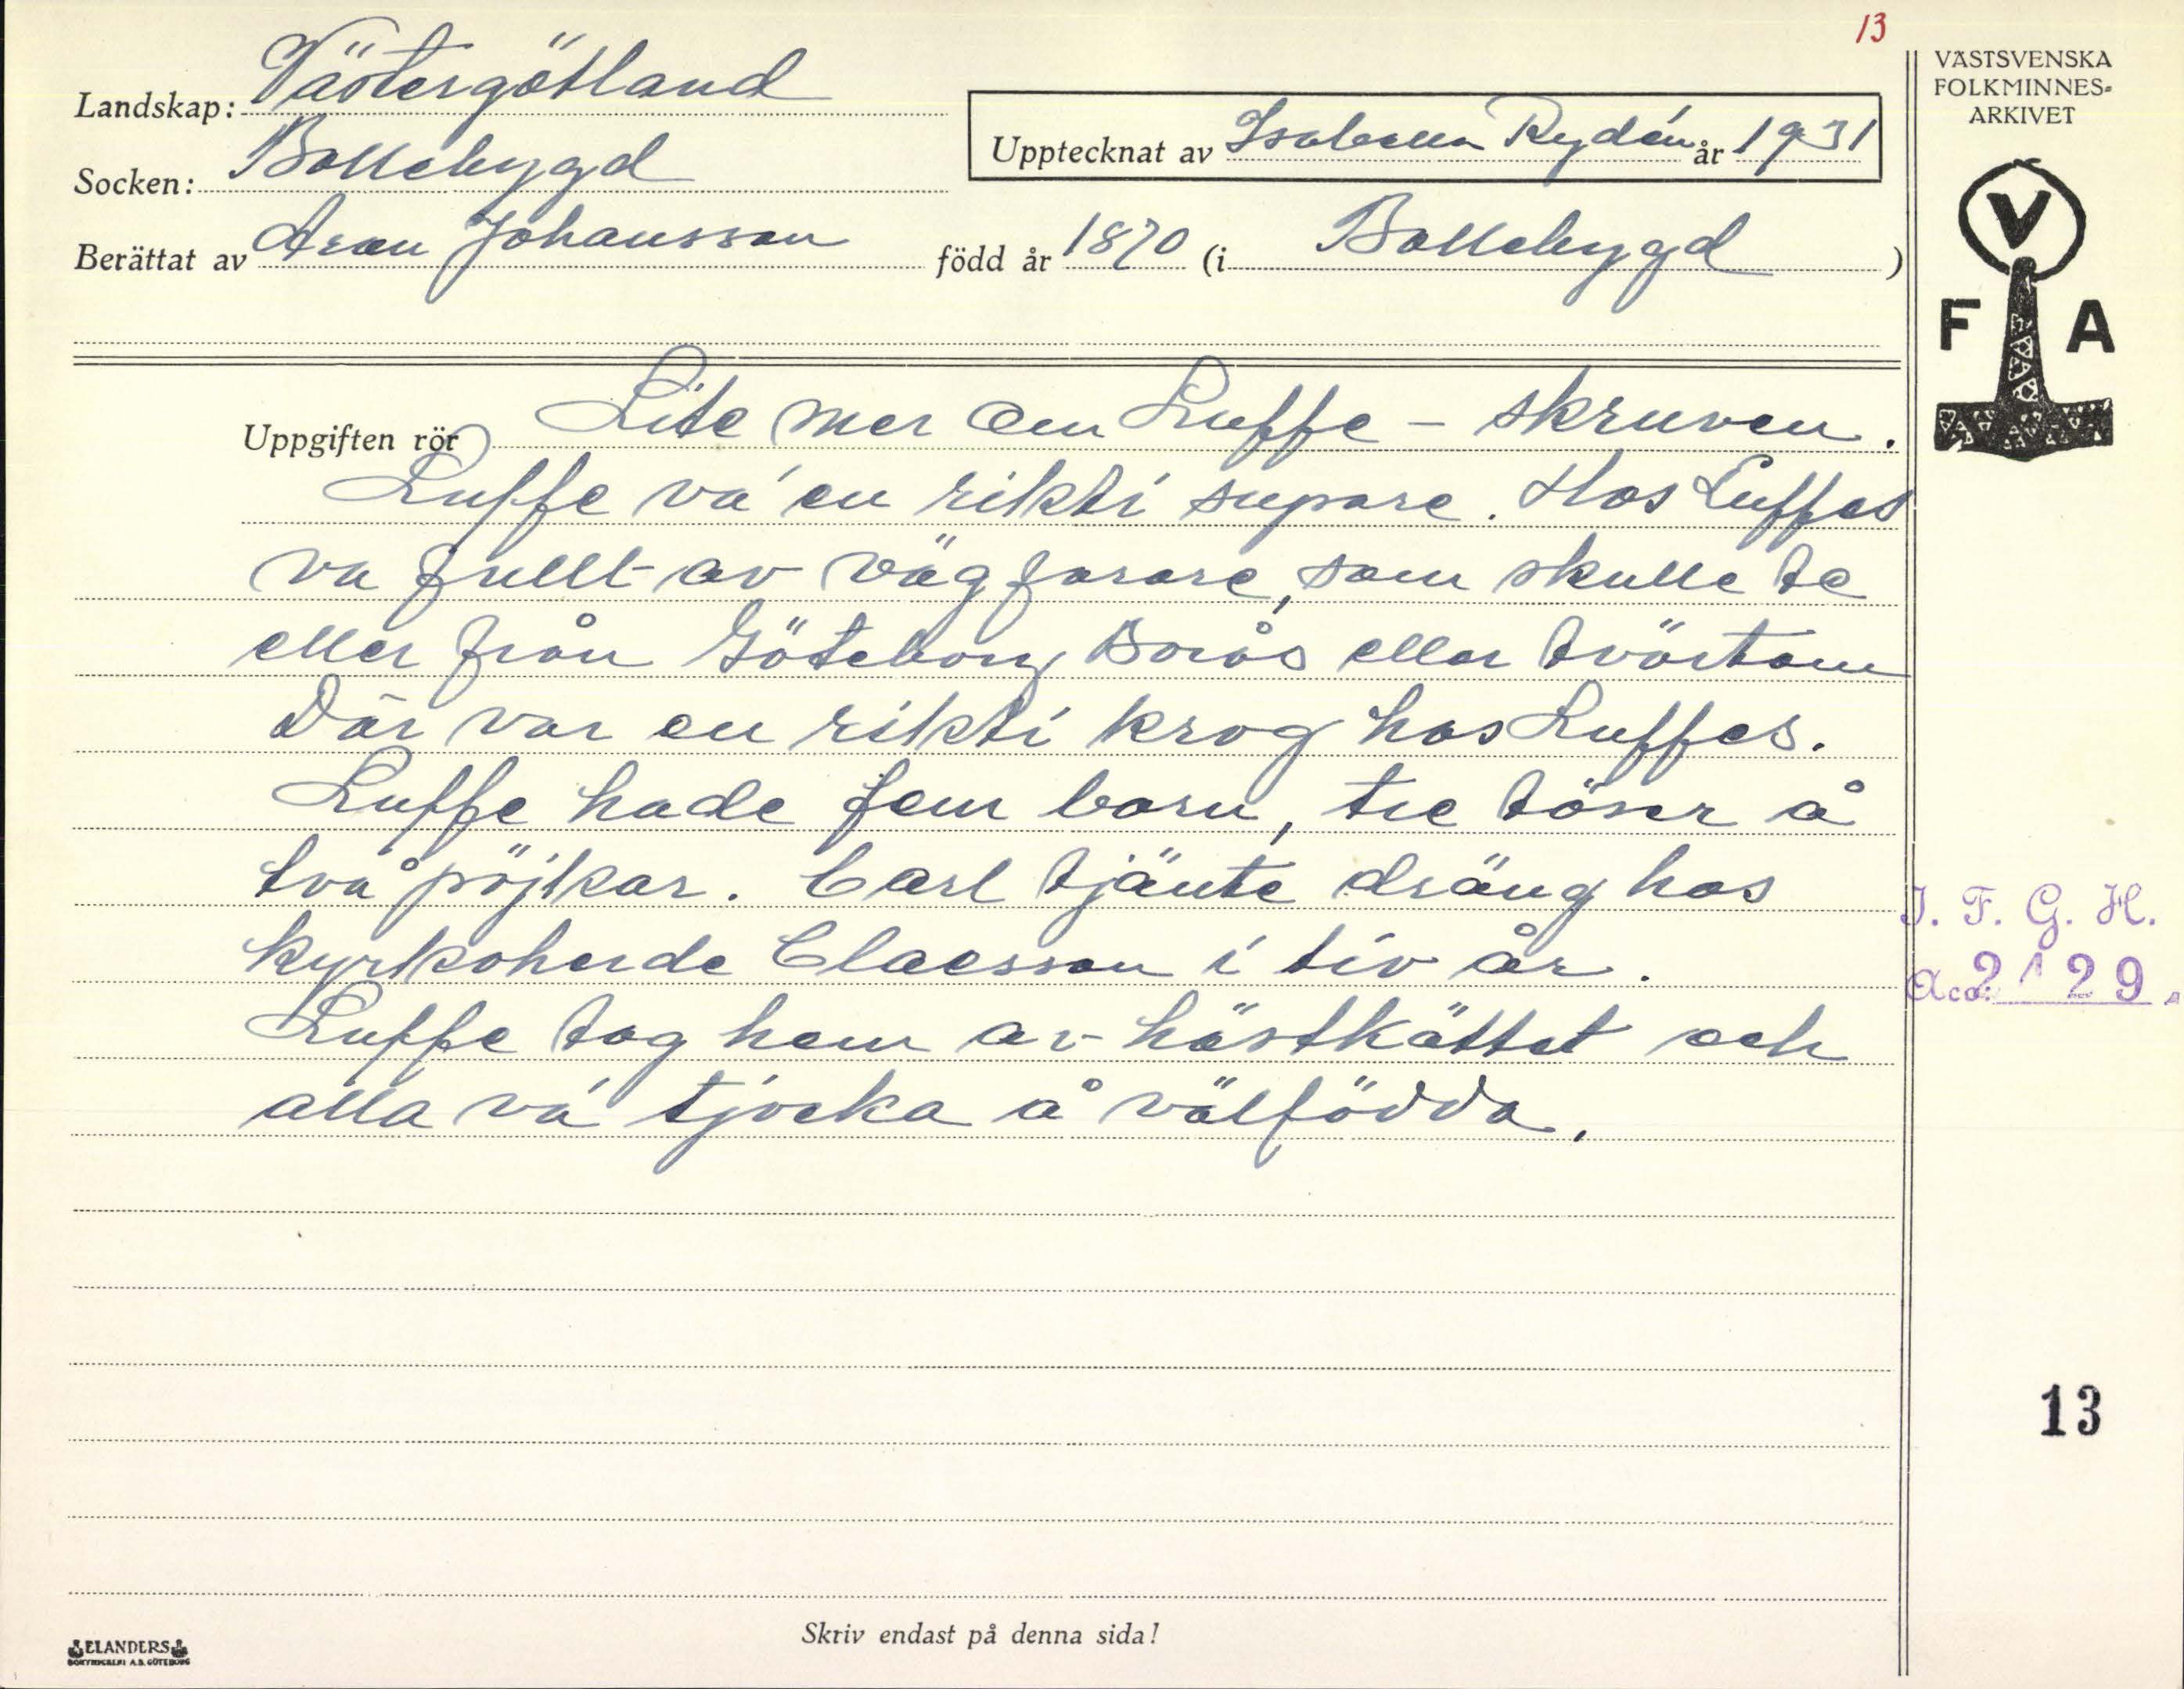 13
Landskap: Västergötland
VÄSTSVENSKA
FOLKMINNES-
ARKIVET
Upptecknat av Isabella Rydén år 1931
Socken: Bollebygd
Berättat av Aron Johansson född år 1870 (i Bollebygd )
V
F A
Uppgiften rör Lite mer om Luffe - skruven.
Luffe va' en rikti supare. Hos Luffes
va fullt av vägfarare, som skulle te
eller från Göteborg Borås eller tvärtom
Där var en rikti krog hos Luffes.
Luffe hade fem barn, tre töser å
två pöjkar. Carl tjänte dräng hos
kyrkoherde Claesson i tiv år.
Luffe tog hem av hästköttet och
alla va' tjocka å välfödda.
I. F. G. H.
Acc. 2129.
13
Skriv endast på denna sida!
ELANDERS
BOKTRYCKERI A.B. GÖTEBORG